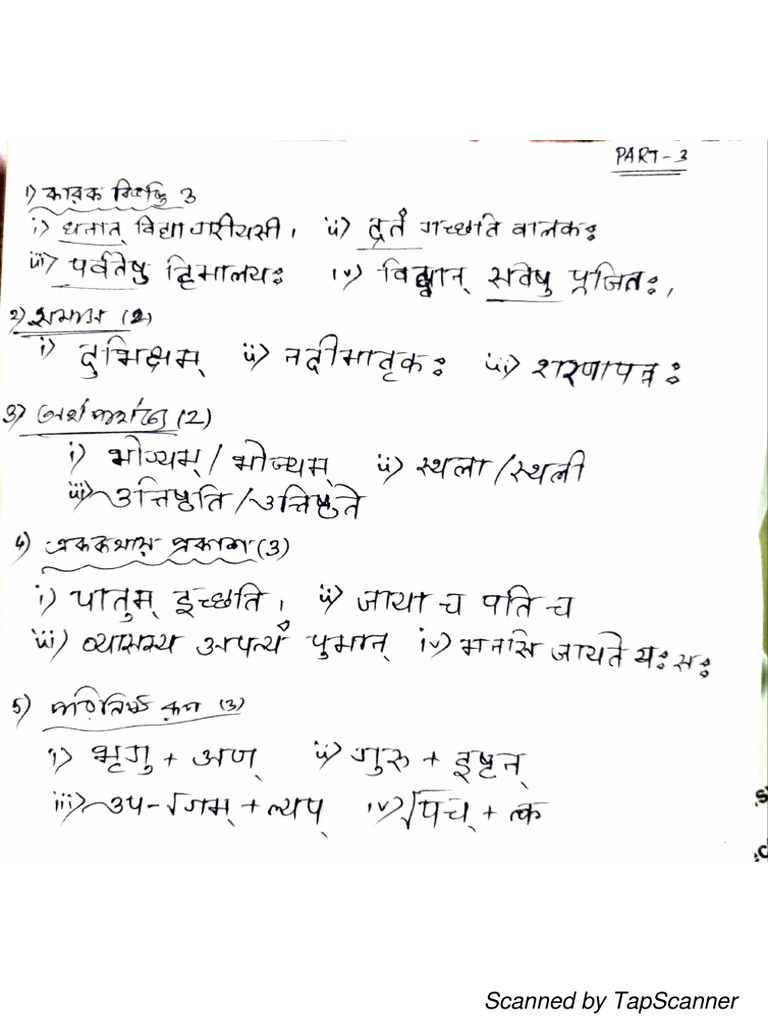 PART-3
1) কারক বিভক্তি 3
i) धनात् विद्या गरीयसी। ii) द्रुतं गच्छति वालकः
iii) पर्वतेषु हिमालयः iv) विद्वान् सर्वेषु पूजितः,
2) সমাস (2)
i) दुर्भिक्षम् ii) नदीमातृकः iii) शरणापन्नः
3) অর্থ পার্থক্য (2)
i) भोग्यम् / भोज्यम् ii) स्थला / स्थली
iii) उत्तिष्ठति / उत्तिष्ठते
4) এককথায় প্রকাশ (3)
i) पातुम् इच्छति। ii) जाया च पति च
iii) व्यासस्य अपत्यं पुमान् iv) मनसि जायते यः सः
5) পরিনিষ্ঠ রূপ (3)
i) भृगु + अण् ii) गुरु + इष्टन्
iii) उप-√गम् + ल्यप् iv) √पच् + क्त
Scanned by TapScanner